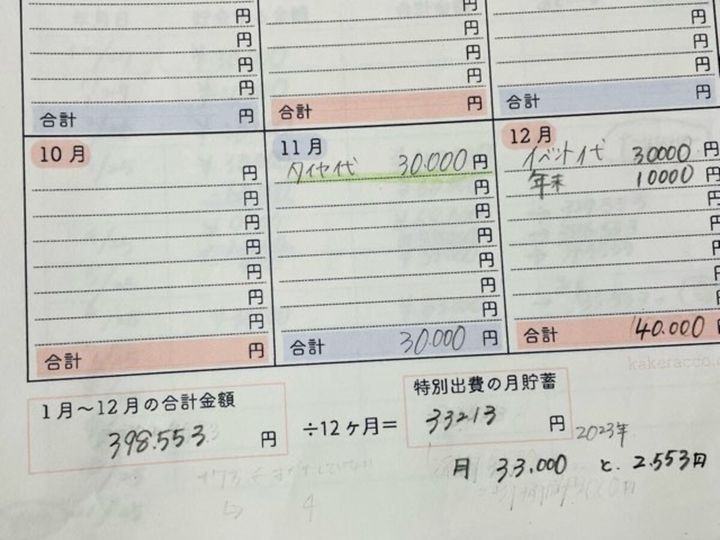 円
円
円
円
円
円
円
円
円
円
円
円
合計 円
合計 円
合計 円
10月
円
円
円
円
円
円
円
合計 円
11月
タイヤ代 30.000円
円
円
円
円
円
円
合計 30.000 円
12月
イベント代 30000円
年末 10000円
円
円
円
円
合計 40.000
kakeracco.c
1月〜12月の合計金額
398.553 円
÷12ヶ月=
特別出費の月貯蓄
33213 円
2023年
月 33.000 と.2.553円